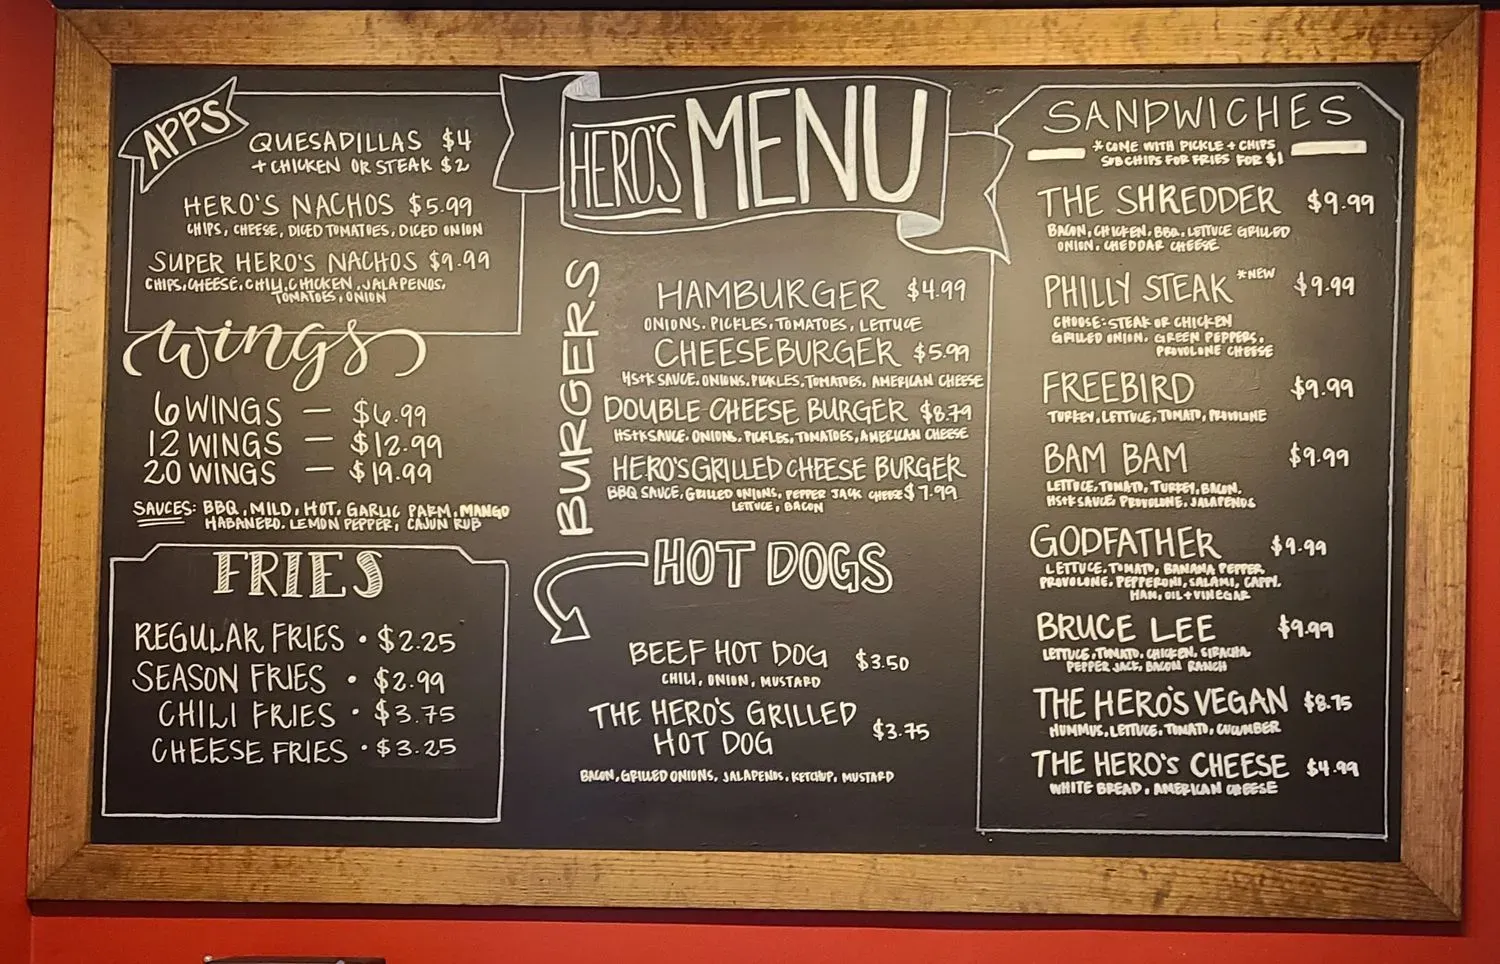 APPS
QUESADILLAS $4
+ CHICKEN OR STEAK $2
HERO'S NACHOS $5.99
CHIPS, CHEESE, DICED TOMATOES, DICED ONION
SUPER HERO'S NACHOS $9.99
CHIPS, CHEESE, CHILI, CHICKEN, JALAPENOS,
TOMATOES, ONION
wings
6 WINGS — $6.99
12 WINGS — $12.99
20 WINGS — $19.99
SAUCES: BBQ, MILD, HOT, GARLIC PARM, MANGO
HABANERO, LEMON PEPPER, CAJUN RUB
FRIES
REGULAR FRIES • $2.25
SEASON FRIES • $2.99
CHILI FRIES • $3.75
CHEESE FRIES • $3.25
HERO'S MENU
BURGERS
HAMBURGER $4.99
ONIONS, PICKLES, TOMATOES, LETTUCE
CHEESEBURGER $5.99
HS+K SAUCE, ONIONS, PICKLES, TOMATOES, AMERICAN CHEESE
DOUBLE CHEESE BURGER $8.79
HS+K SAUCE, ONIONS, PICKLES, TOMATOES, AMERICAN CHEESE
HERO'S GRILLED CHEESE BURGER
BBQ SAUCE, GRILLED ONIONS, PEPPER JACK CHEESE $7.99
LETTUCE, BACON
HOT DOGS
BEEF HOT DOG $3.50
CHILI, ONION, MUSTARD
THE HERO'S GRILLED
HOT DOG $3.75
BACON, GRILLED ONIONS, JALAPENOS, KETCHUP, MUSTARD
SANDWICHES
*COME WITH PICKLE + CHIPS
SUB CHIPS FOR FRIES FOR $1
THE SHREDDER $9.99
BACON, CHICKEN, BBQ, LETTUCE GRILLED
ONION, CHEDDAR CHEESE
PHILLY STEAK *NEW $9.99
CHOOSE: STEAK OR CHICKEN
GRILLED ONION, GREEN PEPPERS,
PROVOLONE CHEESE
FREEBIRD $9.99
TURKEY, LETTUCE, TOMATO, PROVOLONE
BAM BAM $9.99
LETTUCE, TOMATO, TURKEY, BACON,
HS+K SAUCE, PROVOLONE, JALAPENOS
GODFATHER $9.99
LETTUCE, TOMATO, BANANA PEPPER
PROVOLONE, PEPPERONI, SALAMI, CAPPI,
HAM, OIL + VINEGAR
BRUCE LEE $9.99
LETTUCE, TOMATO, CHICKEN, SIRACHA,
PEPPER JACK, BACON RANCH
THE HERO'S VEGAN $8.75
HUMMUS, LETTUCE, TOMATO, CUCUMBER
THE HERO'S CHEESE $4.99
WHITE BREAD, AMERICAN CHEESE